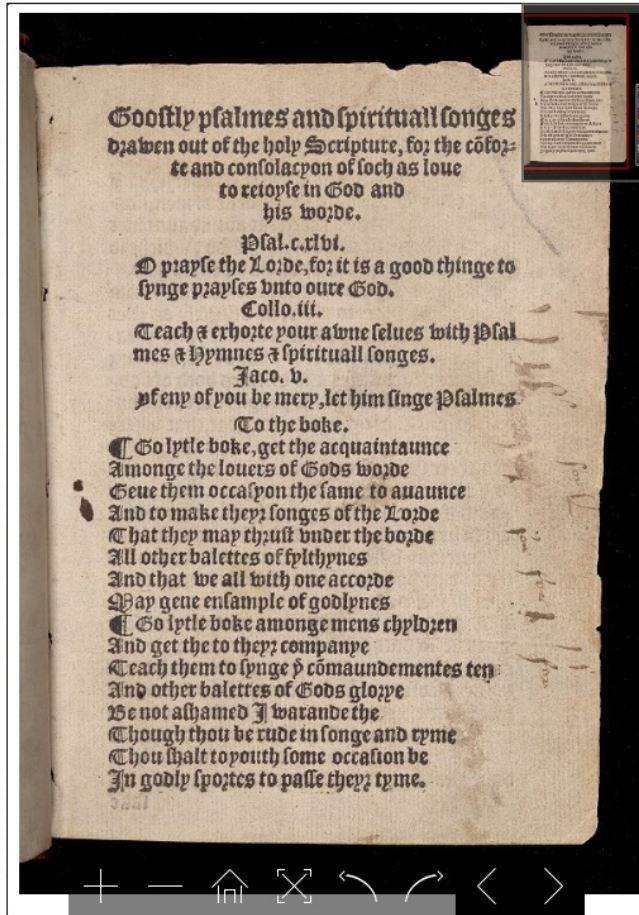 Gooſtly pſalmes and ſpirituall ſonges
drawen out of the holy Scripture, for the cõfor⸗
te and conſolacyon of ſoch as loue
to reioyſe in God and
his worde.
Pſal.c.xlvi.
O prayſe the Lorde, for it is a good thinge to
ſynge prayſes vnto oure God.
Collo.iii.
Teach ⁊ exhorte your awne ſelues with Pſal
mes ⁊ Hymnes ⁊ ſpirituall ſonges.
Jaco. v.
yf eny of you be mery, let him ſinge Pſalmes
To the boke.
¶ Go lytle boke, get the acquaintaunce
Amonge the louers of Gods worde
Geue them occaſyon the ſame to auaunce
And to make theyr ſonges of the Lorde
That they may thruſt vnder the borde
All other balettes of fylthynes
And that we all with one accorde
May geue enſample of godlynes
¶ Go lytle boke amonge mens chyldren
And get the to theyr companye
Teach them to ſynge ẏ cõmaundementes ten
And other balettes of Gods glorye
Be not aſhamed I warande the
Though thou be rude in ſonge and ryme
Thou ſhalt to youth ſome occaſion be
In godly ſportes to paſſe theyr tyme.